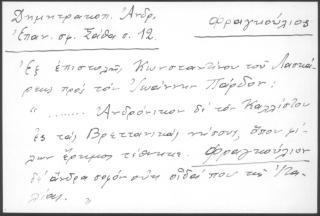 Δημητρακοπ. Ἀνδρ.
Φραγκούλιος
Ἐπαν. σφ. Σάθα σ. 12.
Ἐξ ἐπιστολῆς Κωνσταντίνου τοῦ Λασκάρεως πρὸς τὸν Ἰωάννην Πάρδον:
"........ Ἀνδρόνικον δὲ τὸν Καλλίστου
ἐς τὰς Βρεττανικὰς νήσους, ὅπου φίλων ἔρημος τέθνηκε. Φραγκούλιον
δ' ἄνδρα σοφὸν οὐκ οἶδά που τῆς Ἰταλίας.